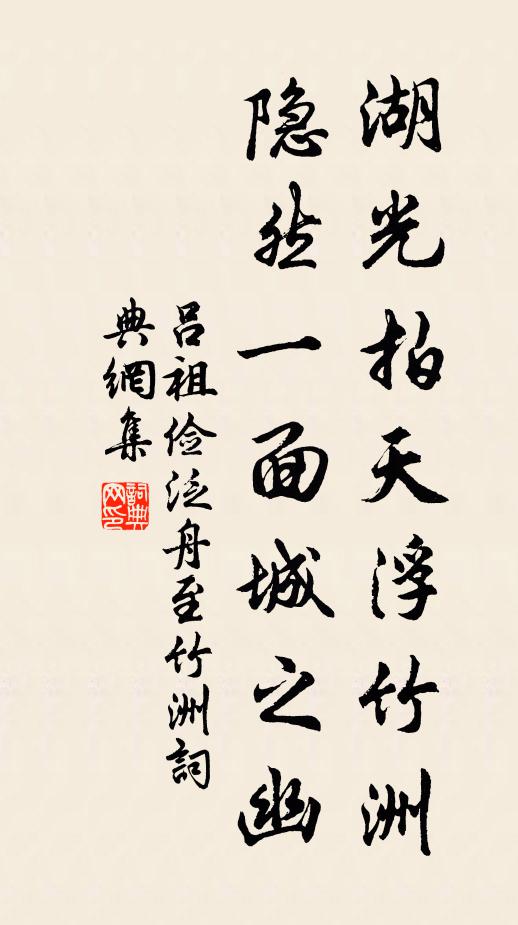 湖光拍天浮竹洲
隐然一面城之幽
吕祖俭泛舟至竹洲詞
典網集
詞典
网印